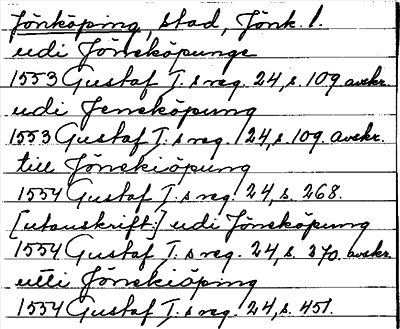 Jönköping, stad, Jönk. l.
udi Jönsköpunge
1553 Gustaf I.s reg. 24, s. 109. avskr.
udi Jensköpung
1553 Gustaf I.s reg. 24, s. 109. avskr.
till Jönskiöpung
1554 Gustaf I.s reg. 24, s. 268.
[utanskrift:] udi Jönsköpung
1554 Gustaf I.s reg. 24, s. 370. avskr.
utti Jönskiöping
1554 Gustaf I.s reg. 24, s. 451.